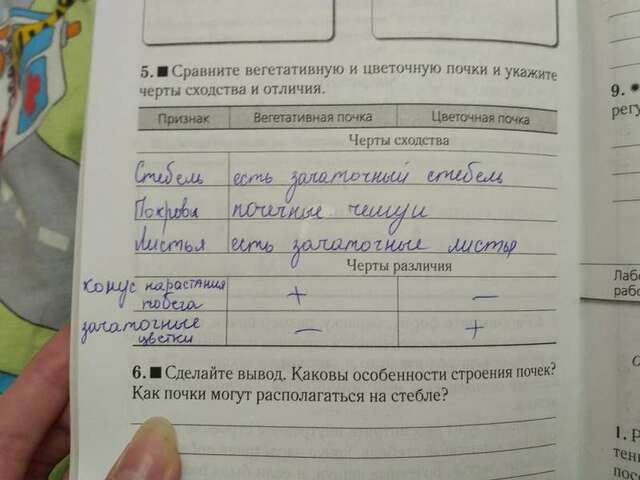 5. ■ Сравните вегетативную и цветочную почки и укажите
черты сходства и отличия.
Признак Вегетативная почка Цветочная почка
Черты сходства
Стебель есть зачаточный стебель
Покровы почечные чешуи
Листья есть зачаточные листья
Черты различия
конус нарастания
побега + –
зачаточные
цветки – +
6. ■ Сделайте вывод. Каковы особенности строения почек?
Как почки могут располагаться на стебле?
9.
регу
Лабо
рабо
1. Р
тени
посе